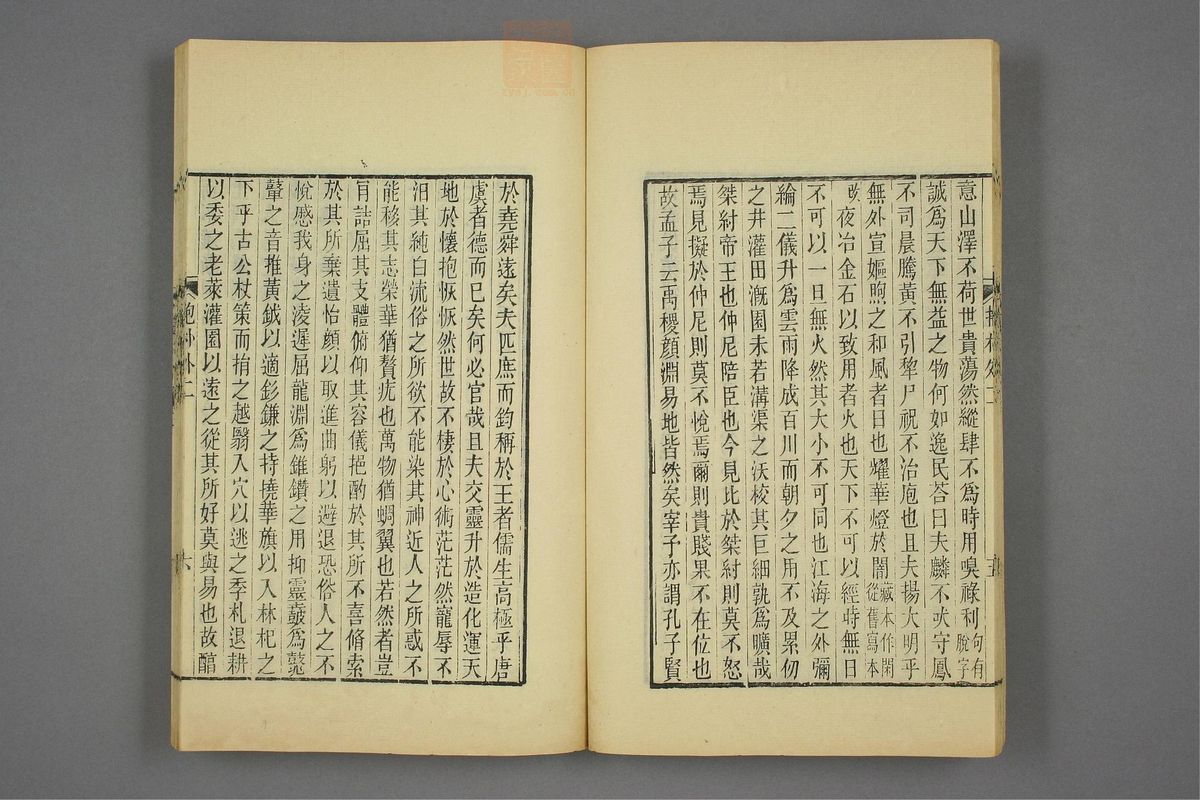 意山澤不荷世貴蕩然縱肆不爲時用嗅祿利句有脫字
誠爲天下無益之物何如逸民荅曰夫麟不吠守鳳
不司晨騰黃不引犂尸祝不治庖也且夫揚大明乎
無外宣嫗煦之和風者日也耀華燈於闇藏本作閑從舊寫本
改夜冶金石以致用者火也天下不可以經時無日
不可以一旦無火然其大小不可同也江海之外彌
綸二儀升爲雲雨降成百川而朝夕之用不及累仞
之井灌田漑園未若溝渠之沃校其巨細孰爲曠哉
桀紂帝王也仲尼陪臣也今見比於桀紂則莫不怒
焉見擬於仲尼則莫不悅焉爾則貴賤果不在位也
故孟子云禹稷顏淵易地皆然矣宰予亦謂孔子賢
五
於堯舜遠矣夫匹庶而鈞稱於王者儒生高極乎唐
虞者德而已矣何必官哉且夫交靈升於造化運天
地於懷抱恢恢然世故不棲於心術茫茫然寵辱不
汨其純白流俗之所欲不能染其神近人之所惑不
能移其志榮華猶贅疣也萬物猶蜩翼也若然者豈
肯詰屈其支體俯仰其容儀挹酌於其所不喜脩索
於其所棄遺怡顏以取進曲躬以避退恐俗人之不
悅慼我身之凌遲屈龍淵爲錐鑽之用抑靈鼖爲鼛
鼙之音推黃鉞以適釤鎌之持撓華旗以入林杞之
下乎古公杖策而捐之越翳入穴以逃之季札退耕
以委之老萊灌園以遠之從其所好莫與易也故醇
抱朴外二
六